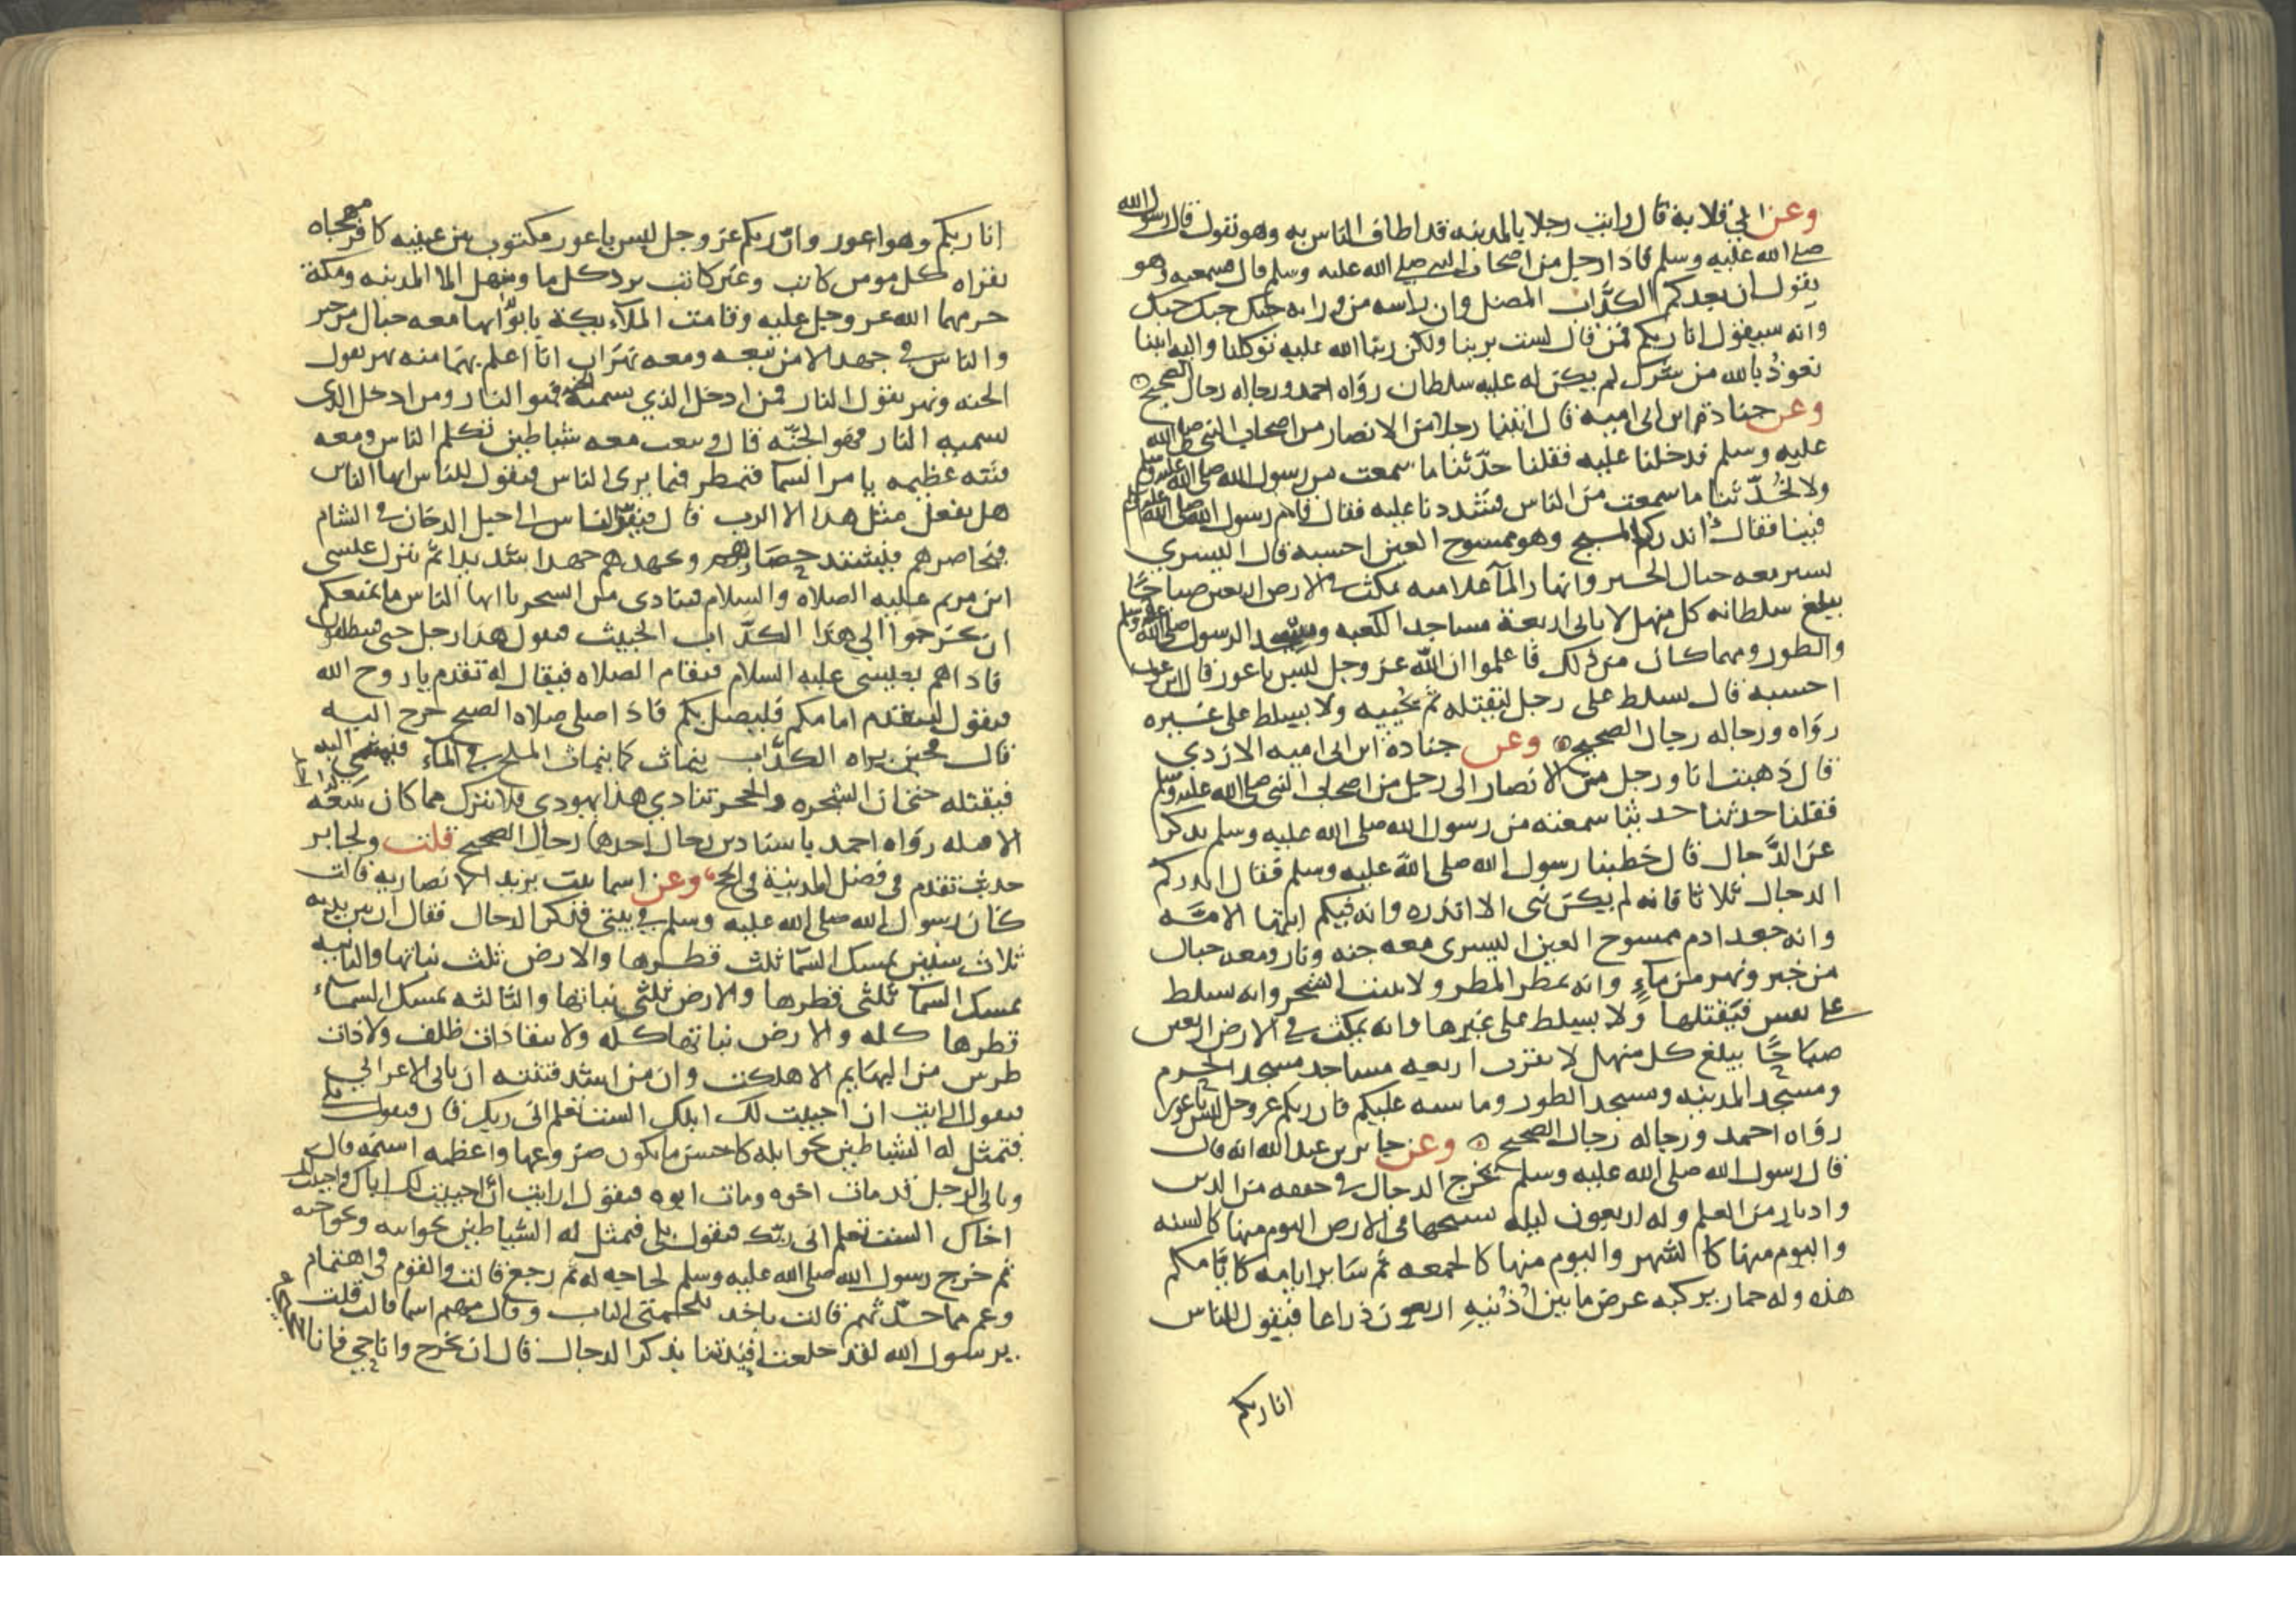 وعن ابي قلابة قال رايت رجلا بالمدينه قد اطاف الناس به وهو يقول قال رسول الله
صلى الله عليه وسلم فاذا رجل من اصحاب النبي صلى الله عليه وسلم قال فسمعته وهو
يقول ان بعدكم الكذاب المضل وان راسه من ورائه حبك حبك حبك
وانه سيقول انا ربكم فمن قال لست بربنا ولكن ربنا الله عليه توكلنا واليه انبنا
نعوذ بالله من شرك لم يكن له عليه سلطان رواه احمد ورجاله رجال الصحيح
وعن جنادة ابن ابى اميه قال اتينا رجلا من الانصار من اصحاب النبي صلى الله
عليه وسلم فدخلنا عليه فقلنا حدثنا ما سمعت من رسول الله صلى الله عليه وسلم
ولا تحدثنا ما سمعت من الناس فشددنا عليه فقال قام رسول الله صلى الله عليه وسلم
فينا فقال انذركم المسيح وهو ممسوح العين احسبه قال اليسري
تسير معه جبال الخبز وانهار الماء علامته يمكث في الارض اربعين صباحا
يبلغ سلطانه كل منهل لا ياتى اربعة مساجد الكعبه ومسجد الرسول صلى الله عليه وسلم
والطور ومهما كان من ذلك فاعلموا ان الله عز وجل ليس باعور قال ابن عون
احسبه قال يسلط على رجل ليقتله ثم يحييه ولا يسلط على غيره
رواه ورجاله رجال الصحيح وعن جنادة ابن ابى اميه الازدي
قال ذهبت انا ورجل من الانصار الى رجل من اصحاب النبي صلى الله عليه وسلم
فقلنا حدثنا حديثا سمعته من رسول الله صلى الله عليه وسلم يذكر
عن الدجال قال خطبنا رسول الله صلى الله عليه وسلم فقال انذركم
الدجال ثلاثا فانه لم يكن نبى الا انذره وانه فيكم ايتها الامه
وانه جعد ادم ممسوح العين اليسرى معه جنه ونار ومعه جبال
من خبز ونهر من ماء وانه يمطر المطر ولا ينبت الشجر وانه يسلط
على نفس فيقتلها ولا يسلط على غيرها وانه يمكث في الارض اربعين
صباحا يبلغ كل منهل لا يقرب اربعه مساجد مسجد الحرم
ومسجد المدينه ومسجد الطور وما يشبه عليكم فان ربكم عز وجل ليس باعور
رواه احمد ورجاله رجال الصحيح وعن جابر بن عبد الله انه قال
قال رسول الله صلى الله عليه وسلم يخرج الدجال في خفقه من الدين
وادبار من العلم وله اربعون ليله يسيحها فى الارض اليوم منها كالسنه
واليوم منها كالشهر واليوم منها كالجمعه ثم سائر ايامه كايامكم
هذه وله حمار يركبه عرض ما بين اذنيه اربعون ذراعا فيقول للناس
انا ربكم
انا ربكم وهو اعور وان ربكم عز وجل ليس باعور مكتوب بين عينيه كافر مهجاه
يقراه كل مومن كاتب وغير كاتب يرد كل ما ومنهل الا المدينه ومكة
حرمهما الله عز وجل عليه وقامت الملائكة بابوابها معه جبال من خبز
والناس في جهد الا من تبعه ومعه نهران انا اعلم بهما منه نهر يقول
الجنه ونهر يقول النار فمن ادخل الذي يسميه الجنه فهو النار ومن ادخل الذي
يسميه النار فهو الجنه قال وتبعث معه شياطين تكلم الناس ومعه
فتنه عظيمه يامر السما فتمطر فيما يرى الناس فيقول للناس ايها الناس
هل يفعل مثل هذا الا الرب قال فيفر الناس الى جبل الدخان في الشام
فيحاصرهم فيشتد حصارهم ويجهدهم جهدا شديدا ثم ينزل عيسى
ابن مريم عليه الصلاه والسلام فينادى من السحر يا ايها الناس ما يمنعكم
ان تخرجوا الي هذا الكذاب الخبيث فيقول هذا رجل جنى فينطلقون
فاذا هم بعيسى عليه السلام فتقام الصلاه فيقال له تقدم يا روح الله
فيقول ليتقدم امامكم فليصل بكم فاذا صلى صلاه الصبح خرج اليه
قال فحين يراه الكذاب ينماث كما ينماث الملح في الماء فيمشي اليه
فيقتله حتى ان الشجره والحجر تنادي هذا يهودى فلا يترك مما كان يتبعه احدا
الا قتله رواه احمد باسنادين رجال احدهما رجال الصحيح قلت ولجابر
حديث تقدم فى فضل المدينة في الحج وعن اسما بنت يزيد الانصاريه قالت
كان رسول الله صلى الله عليه وسلم في بيتى فذكر الدجال فقال ان بين يديه
ثلاث سنين تمسك السما ثلث قطرها والارض ثلث نباتها والثانيه
تمسك السما ثلثى قطرها والارض ثلثي نباتها والثالثه تمسك السماء
قطرها كله والارض نباتها كله ولا يبقا ذات ظلف ولا ذات
ظرس من البهايم الا هلكت وان من اشد فتنته ان ياتى الاعرابي
فيقول ارايت ان احييت لك ابلك الست تعلم انى ربك قال فيقول بلى
فتمثل له الشياطين نحو ابله كاحسن ما يكون ضروعها واعظمه اسنمه قال
وياتى الرجل قد مات اخوه ومات ابوه فيقول ارايت ان احييت لك اباك واحييت لك
اخاك الست تعلم انى ربك فيقول بلى فيمثل له الشياطين نحو ابيه ونحو اخيه
ثم خرج رسول الله صلى الله عليه وسلم لحاجه له ثم رجع قالت والقوم في اهتمام
وغم مما حدثهم قالت فاخذ بلحمتى الباب وقال مهيم اسما قالت قلت
يرسول الله لقد خلعت افئدتنا بذكر الدجال قال ان يخرج وانا حي فانا